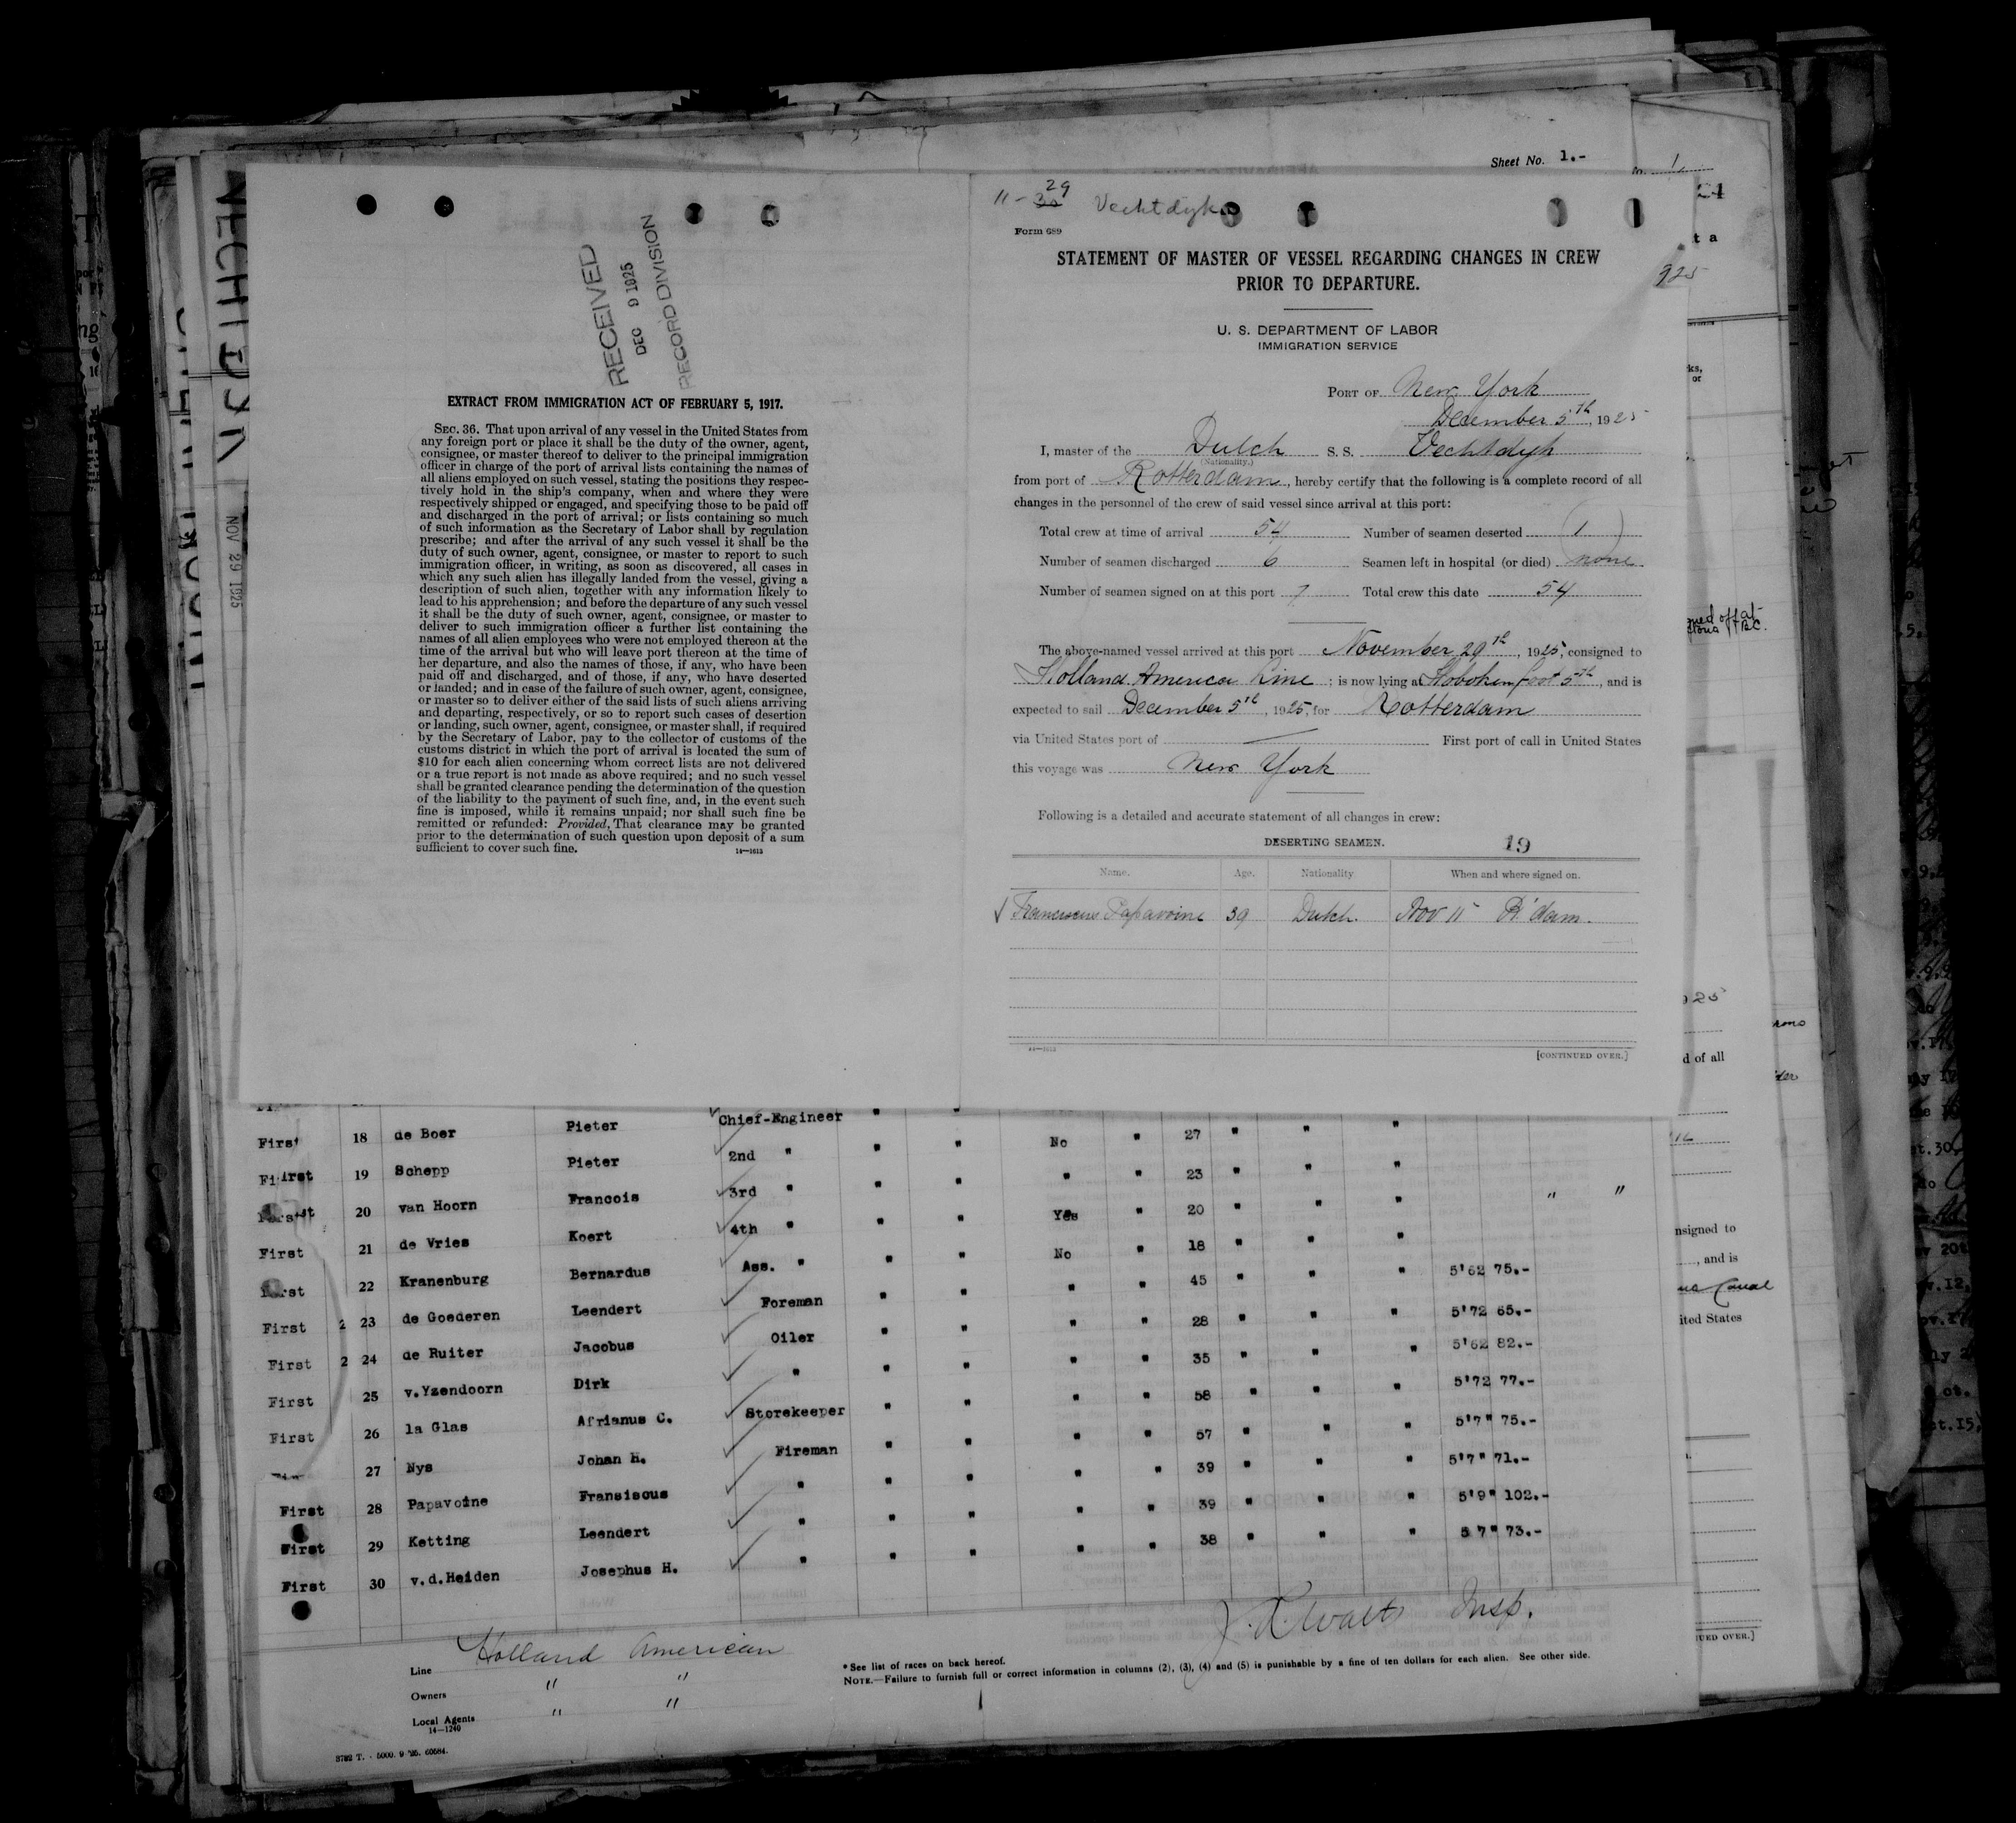 Sheet No. 1.-
RECEIVED
DEC 9 1925
RECORD DIVISION
NOV 29 1925
EXTRACT FROM IMMIGRATION ACT OF FEBRUARY 5, 1917.
SEC. 36. That upon arrival of any vessel in the United States from
any foreign port or place it shall be the duty of the owner, agent,
consignee, or master thereof to deliver to the principal immigration
officer in charge of the port of arrival lists containing the names of
all aliens employed on such vessel, stating the positions they respec-
tively hold in the ship's company, when and where they were
respectively shipped or engaged, and specifying those to be paid off
and discharged in the port of arrival; or lists containing so much
of such information as the Secretary of Labor shall by regulation
prescribe; and after the arrival of any such vessel it shall be the
duty of such owner, agent, consignee, or master to report to such
immigration officer, in writing, as soon as discovered, all cases in
which any such alien has illegally landed from the vessel, giving a
description of such alien, together with any information likely to
lead to his apprehension; and before the departure of any such vessel
it shall be the duty of such owner, agent, consignee, or master to
deliver to such immigration officer a further list containing the
names of all alien employees who were not employed thereon at the
time of the arrival but who will leave port thereon at the time of
her departure, and also the names of those, if any, who have been
paid off and discharged, and of those, if any, who have deserted
or landed; and in case of the failure of such owner, agent, consignee,
or master so to deliver either of the said lists of such aliens arriving
and departing, respectively, or so to report such cases of desertion
or landing, such owner, agent, consignee, or master shall, if required
by the Secretary of Labor, pay to the collector of customs of the
customs district in which the port of arrival is located the sum of
$10 for each alien concerning whom correct lists are not delivered
or a true report is not made as above required; and no such vessel
shall be granted clearance pending the determination of the question
of the liability to the payment of such fine, and, in the event such
fine is imposed, while it remains unpaid; nor shall such fine be
remitted or refunded: Provided, That clearance may be granted
prior to the determination of such question upon deposit of a sum
sufficient to cover such fine. 14—1613
11 - 30 29 Vechtdyk
Form 689
STATEMENT OF MASTER OF VESSEL REGARDING CHANGES IN CREW
PRIOR TO DEPARTURE.
U. S. DEPARTMENT OF LABOR
IMMIGRATION SERVICE
PORT OF New York
December 5th, 1925
I, master of the Dutch S. S. Vechtdyk
(Nationality.)
from port of Rotterdam, hereby certify that the following is a complete record of all
changes in the personnel of the crew of said vessel since arrival at this port:
Total crew at time of arrival 54 Number of seamen deserted 1
Number of seamen discharged 6 Seamen left in hospital (or died) none
Number of seamen signed on at this port 7 Total crew this date 54
The above-named vessel arrived at this port November 29th, 1925, consigned to
Holland America Line; is now lying at Hoboken foot 5th, and is
expected to sail December 5th, 1925, for Rotterdam
via United States port of — First port of call in United States
this voyage was New York
Following is a detailed and accurate statement of all changes in crew:
DESERTING SEAMEN. 19
Name. Age. Nationality When and where signed on.
✓ Franciscus Papavoine 39 Dutch Nov 11 R'dam.
14—1613 [CONTINUED OVER.]
Chief-Engineer " "
First 18 de Boer Pieter 2nd " " " No " 27 " " "
First 19 Schepp Pieter 3rd " " " " " 23 " " "
First 20 van Hoorn Francois 4th " " " Yes " 20 " " " " "
First 21 de Vries Koert Ass. " " " No " 18 " " "
First 22 Kranenburg Bernardus Foreman " " " " 45 " " " 5'62 75.-
First 2 23 de Goederen Leendert Oiler " " " " 28 " " " 5'72 65.-
First 2 24 de Ruiter Jacobus " " " " " 35 " " " 5'62 82.-
First 25 v.Yzendoorn Dirk Storekeeper " " " " 58 " " " 5'72 77.-
First 26 la Glas Afrianus C. Fireman " " " " 57 " " " 5'7" 75.-
27 Nys Johan H. " " " " " 39 " " " 5'7" 71.-
First 28 Papavoine Fransiscus " " " " " 39 " " " 5'9" 102.-
First 29 Ketting Leendert " " " " " 38 " " " 5 7" 73.-
First 30 v.d.Heiden Josephus H.
Line Holland American
Owners " "
Local Agents " "
14—1240
3782 T. - 5000. 9 '25. 60584.
Insp.
* See list of races on back hereof.
NOTE.—Failure to furnish full or correct information in columns (2), (3), (4) and (5) is punishable by a fine of ten dollars for each alien. See other side.
d of all
nsigned to
, and is
Canal
ited States